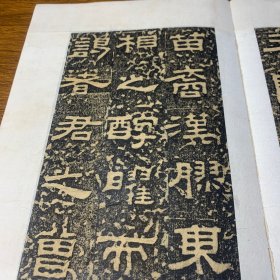 苗裔漢膠東
相之醇曜而
謁者君之曾